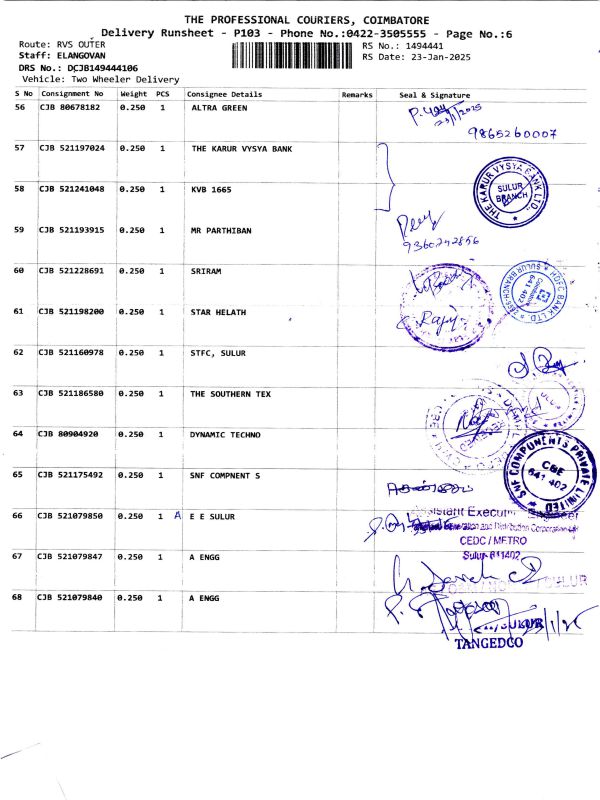 THE PROFESSIONAL COURIERS, COIMBATORE
Delivery Runsheet - P103 - Phone No.:0422-3505555 - Page No.:6
Route: RVS OUTER
RS No.: 1494441
Staff: ELANGOVAN
RS Date: 23-Jan-2025
DRS No.: DCJB149444106
Vehicle: Two Wheeler Delivery
S No Consignment No Weight PCS Consignee Details Remarks Seal & Signature
56 CJB 80678182 0.250 1 ALTRA GREEN
23/1/2025
9865260007
57 CJB 521197024 0.250 1 THE KARUR VYSYA BANK
THE KARUR VYSYA BANK LTD.
SULUR
BRANCH
58 CJB 521241048 0.250 1 KVB 1665
59 CJB 521193915 0.250 1 MR PARTHIBAN
9360242856
60 CJB 521228691 0.250 1 SRIRAM
HDFC BANK LTD.
SULUR BRANCH
Coimbatore
641 402
61 CJB 521198200 0.250 1 STAR HELATH
Rajiy
62 CJB 521160978 0.250 1 STFC, SULUR
63 CJB 521186580 0.250 1 THE SOUTHERN TEX
64 CJB 80904920 0.250 1 DYNAMIC TECHNO
65 CJB 521175492 0.250 1 SNF COMPNENT S
SNF COMPONENTS PRIVATE LIMITED
CBE
641 402
66 CJB 521079850 0.250 1 A E E SULUR
Generation and Distribution Corporation Ltd
CEDC / METRO
Sulur 641402
67 CJB 521079847 0.250 1 A ENGG
SULUR
68 CJB 521079840 0.250 1 A ENGG
SULUR
TANGEDCO